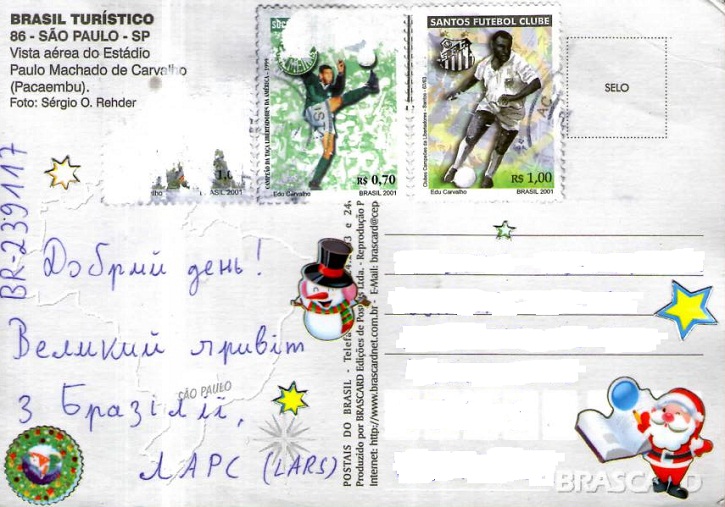 BRASIL TURÍSTICO
86 - SÃO PAULO - SP
Vista aérea do Estádio
Paulo Machado de Carvalho
(Pacaembu).
Foto: Sérgio O. Rehder
CAMPEÃO DA TAÇA LIBERTADORES DA AMÉRICA - 1999
Edu Carvalho
R$ 0,70
BRASIL 2001
SANTOS FUTEBOL CLUBE
Edu Carvalho
R$ 1,00
BRASIL 2001
SELO
BR-239117
Добрий день!
Великий привіт
з Бразілії,
ЛАРС (LARS)
SÃO PAULO
POSTAIS DO BRASIL - 
Produzido por BRASCARD Edições de Postais Ltda. - Reprodução P
Internet: http://www.brascardnet.com.br - E-Mail: brascard@cep
BRASCARD